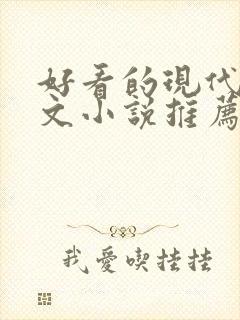 好看的現代
文小說推薦
我愛喫挂挂